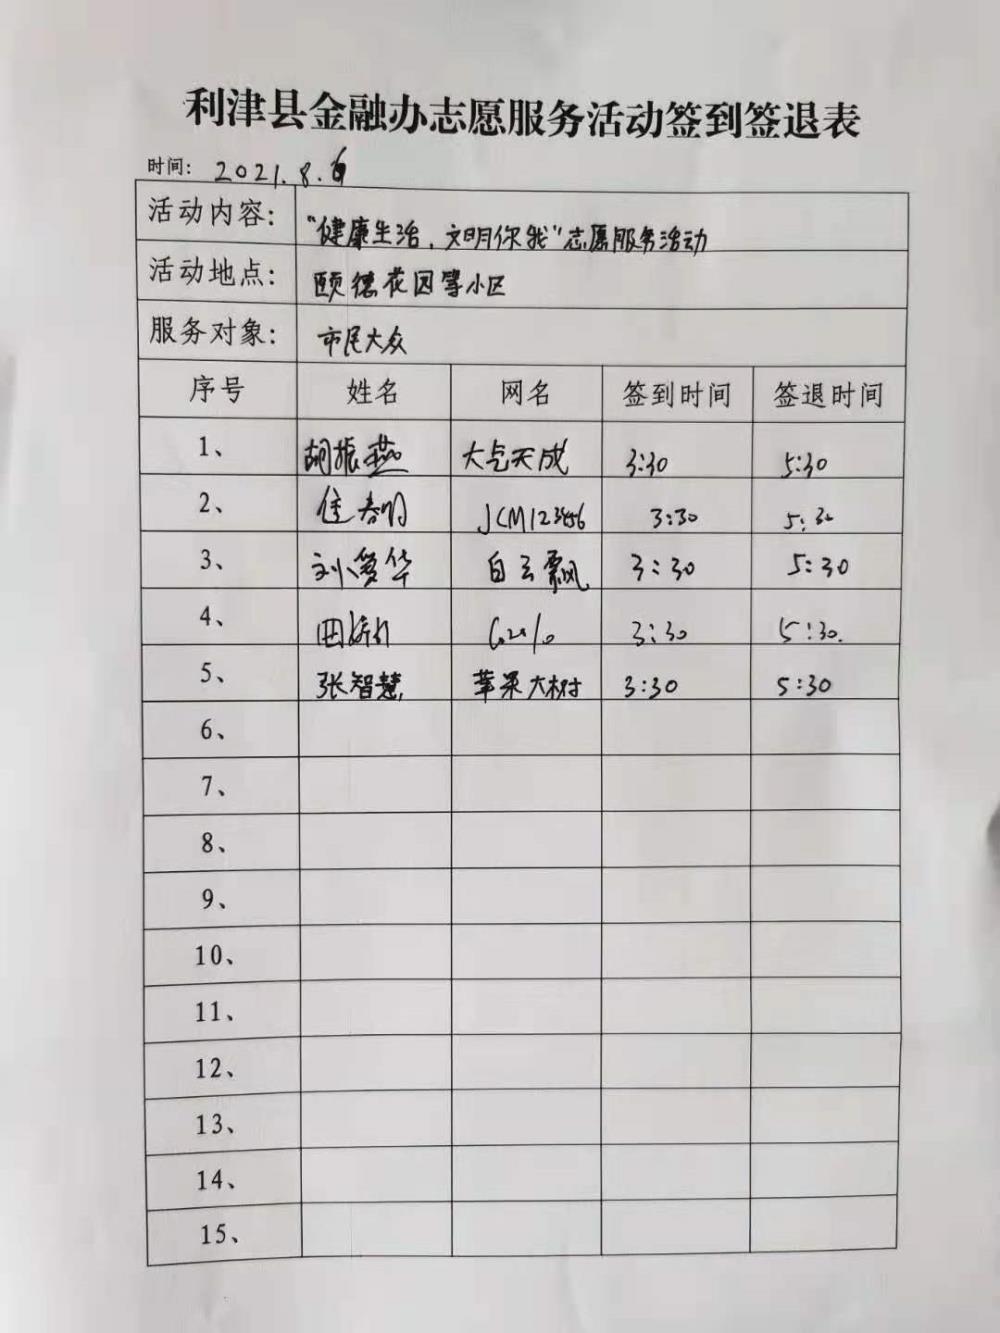 利津县金融办志愿服务活动签到签退表
时间: 2021.8.6
活动内容: "健康生活,文明你我"志愿服务活动
活动地点: 颐德花园等小区
服务对象: 市民大众
序号 姓名 网名 签到时间 签退时间
1、 胡振燕 大气天成 3:30 5:30
2、 JCM123456 3:30 5:30
3、 刘爱华 白云飘 3:30 5:30
4、 田 3:30 5:30.
5、 张智慧 苹果大树 3:30 5:30
6、
7、
8、
9、
10、
11、
12、
13、
14、
15、